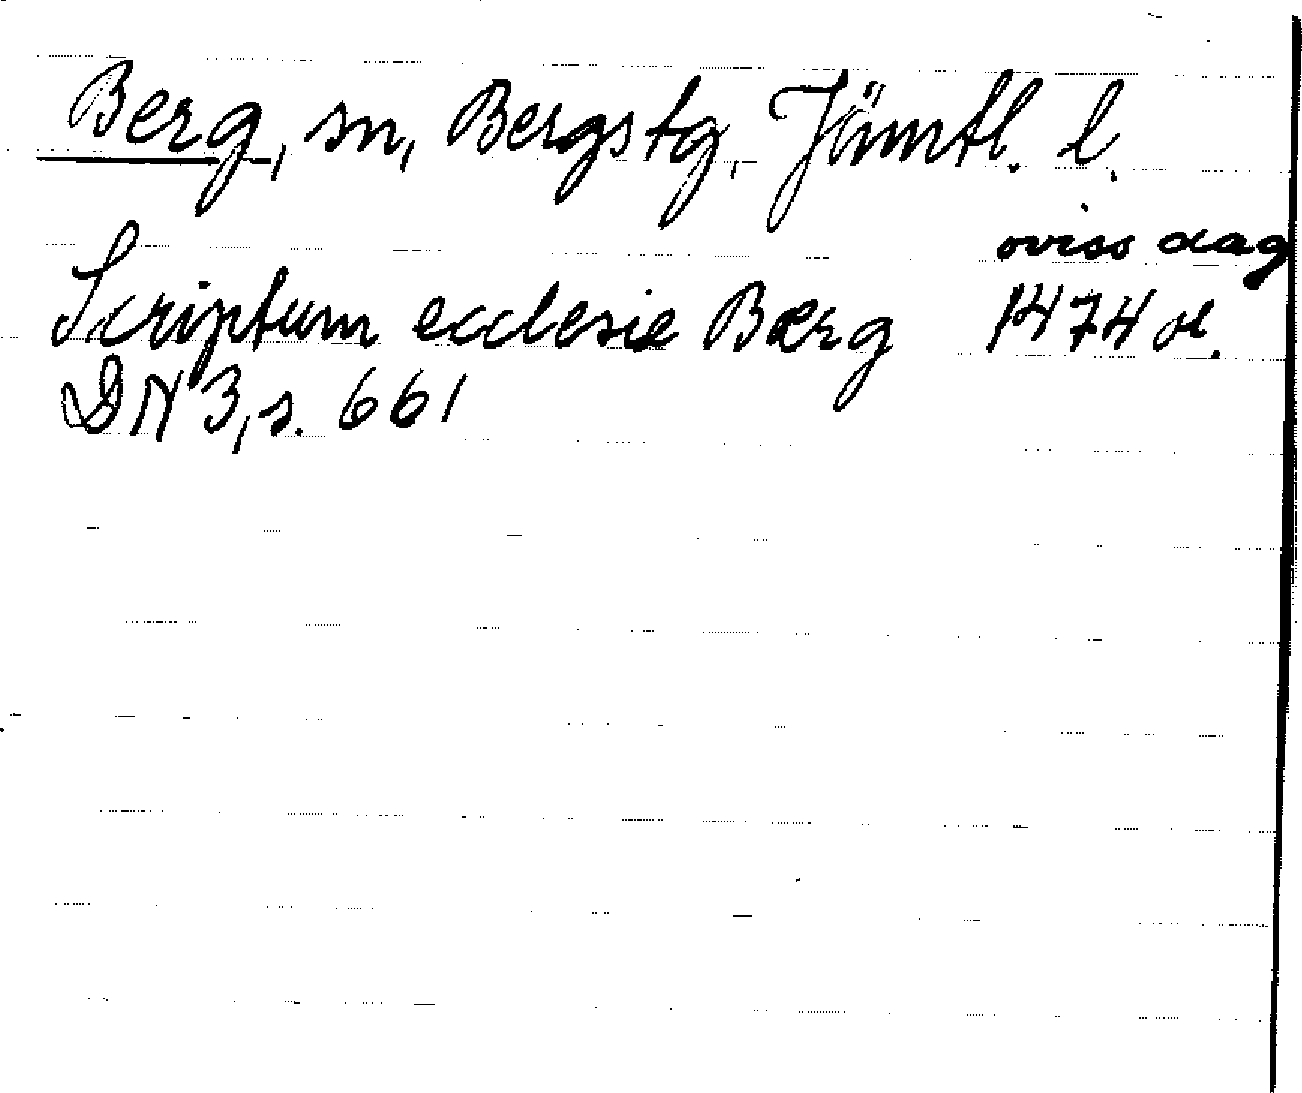 Berg, sn, Bergs tg, Jämtl. l.
oviss dag
Scriptum ecclesie Bærg 1474 or.
DN 3, s. 661